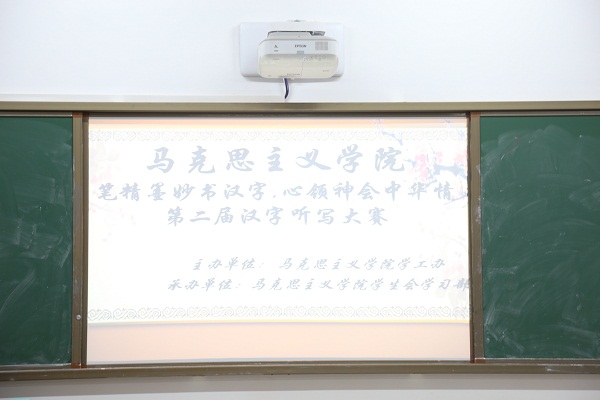 EPSON
马克思主义学院
笔精墨妙书汉字,心领神会中华情
第二届汉字听写大赛
主办单位：马克思主义学院学工办
承办单位：马克思主义学院学生会学习部